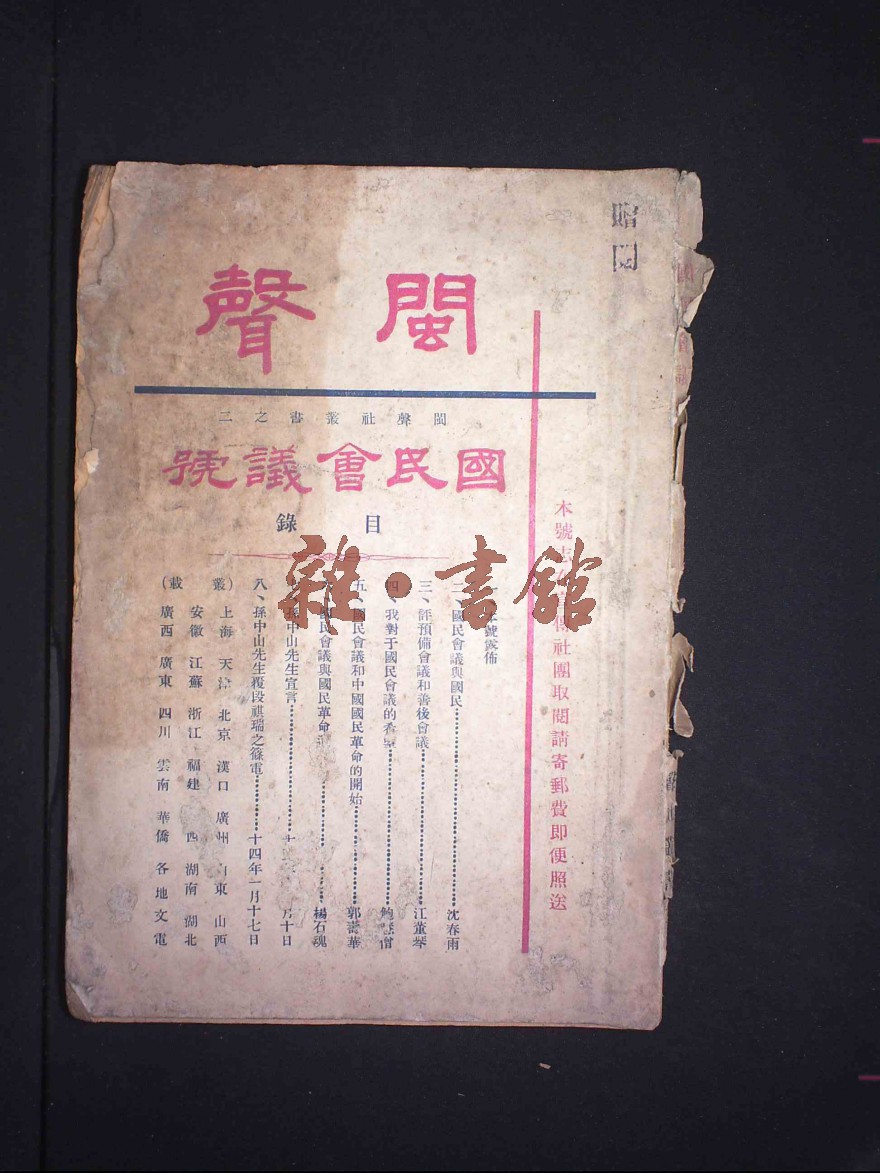 贈閱
閩聲
閩聲社叢書之二
國民會議號
目錄
本號 社團取閱請寄郵費即便照送
本號露佈
二、國民會議與國民 沈春雨
三、評預備會議和善後會議 江董琴
四、我對于國民會議的希望 鮑 僧
五、國民會議和中國國民革命的開始 郭壽華
國民會議與國民革命 楊石魂
孫中山先生宣言 月十日
八、孫中山先生覆段祺瑞之篠電 十四年一月十七日
(叢載)
上海 天津 北京 漢口 廣州 山東 山西
安徽 江蘇 浙江 福建 湖南 湖北
廣西 廣東 四川 雲南 華僑 各地文電
雜·書館